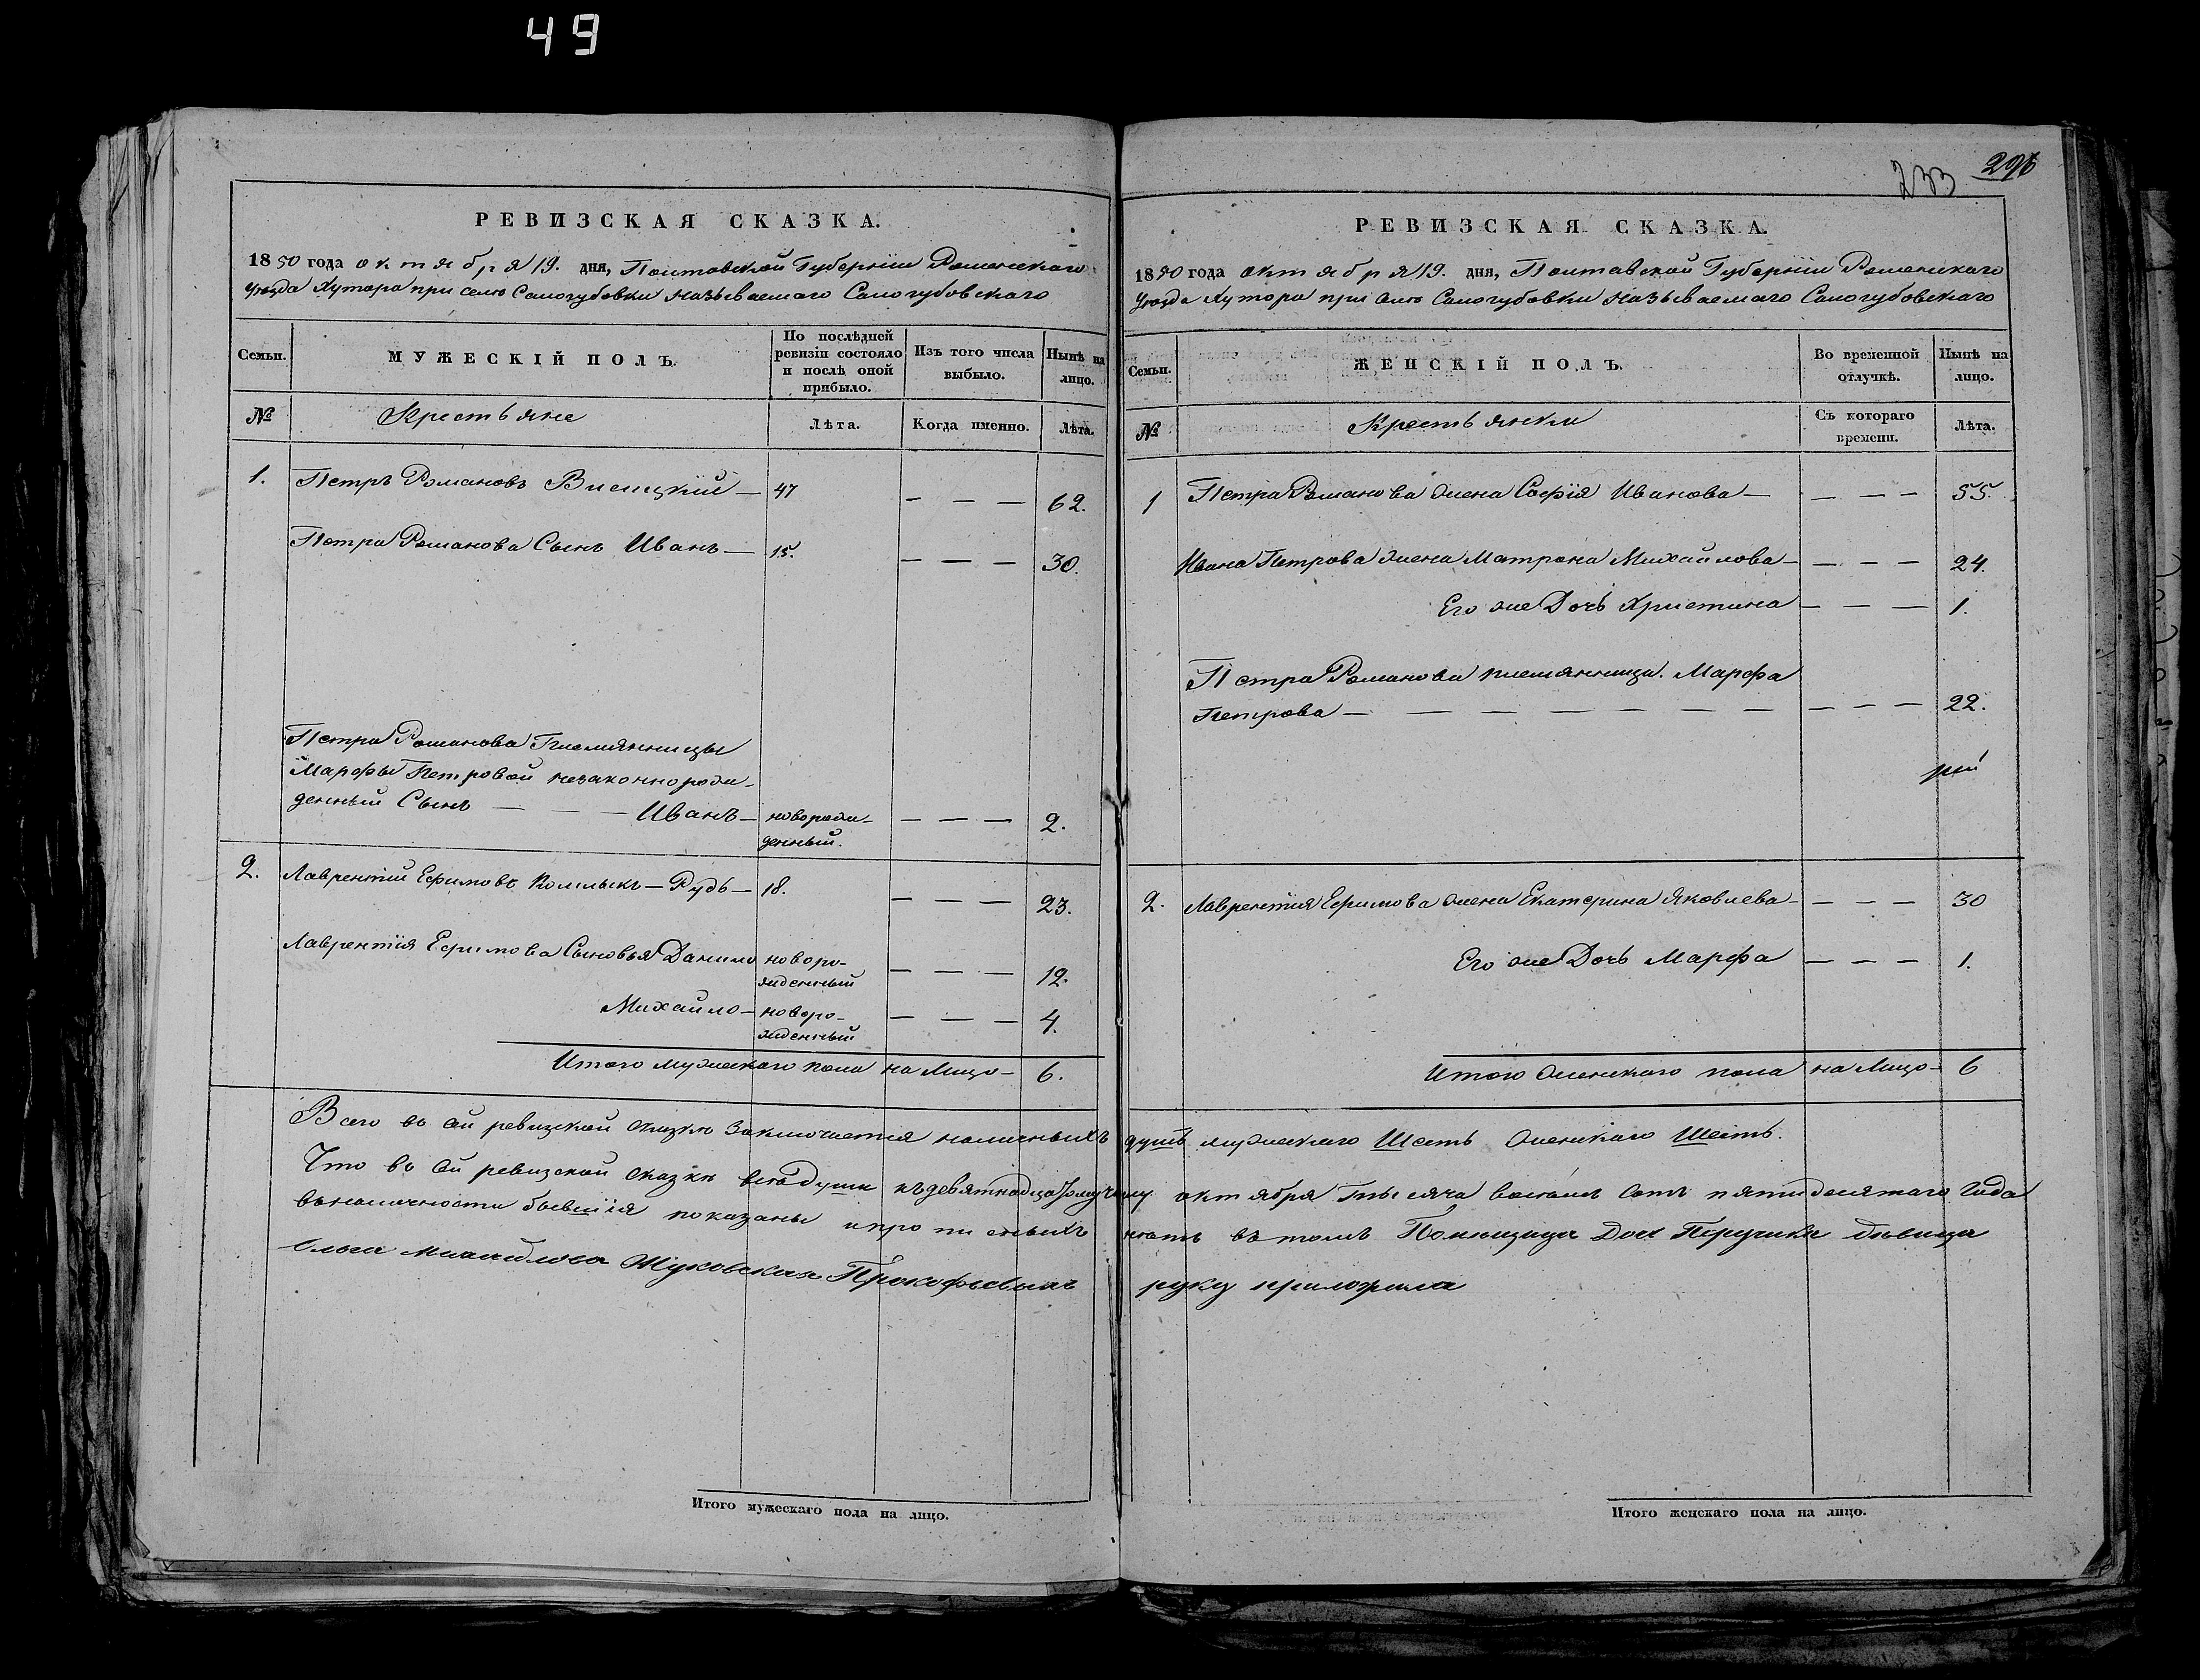 49
233 296
РЕВИЗСКАЯ СКАЗКА.
1850 года октября 19. дня, Полтавской Губерніи Роменскаго
Уѣзда Хутора при селѣ Самогубовки называемаго Самогубовскаго
Семьи.
МУЖЕСКІЙ ПОЛЪ.
По послѣдней
ревизіи состояло
и послѣ оной
прибыло.
Изъ того числа
выбыло.
Нынѣ на
лицо.
№ Крестьяне Лѣта. Когда именно. Лѣта.
1. Петръ Романовъ Висицкій — 47 — — — 62.
Петра Романова Сынъ Иванъ — 15. — — — 30.
Петра Романова Племянницы
Марфы Петровой незаконнорож-
денный Сынъ — — — Иванъ — новорож- — — — 2.
денный.
2. Лаврентій Ефимовъ — Рудь — 18. — — — 23.
Лаврентія Ефимова Сыновья Данило новоро- — — — 12.
жденный
Михайло — новоро- — — — 4.
жденный
Итого мужескаго пола на Лицо — 6.
Всего въ сей ревизской сказкѣ заключается наличныхъ
Что въ сей ревизской сказкѣ всѣ души къ девятнадцатому числу
въ наличности бывшія показаны и прописныхъ
Ольга Михайлова Жуковская Прокофьевыхъ
Итого мужескаго пола на лицо.
РЕВИЗСКАЯ СКАЗКА.
1850 года октября 19. дня, Полтавской Губерніи Роменскаго
Уѣзда Хутора при селѣ Самогубовки называемаго Самогубовскаго
Семьи.
ЖЕНСКІЙ ПОЛЪ.
Во временной
отлучкѣ.
Нынѣ на
лицо.
№ Крестьянки Съ котораго
времени. Лѣта.
1 Петра Романова жена Софія Иванова — — — — 55.
Ивана Петрова жена Матрона Михайлова — — — — 24.
Его же Дочь Христина — — — 1.
Петра Романова племянница Марфа
Петрова — — — — — — — — — — — 22.
2. Лаврентія Ефимова жена Екатерина Яковлева — — — — 30
Его же Дочь Марфа — — — 1.
Итого женскаго пола на Лицо — 6
душъ мужескаго Шесть женскаго Шесть.
октября Тысяча восемь сотъ пятидесятаго Года
нѣтъ въ томъ Помѣщица Дочь Поручика дѣвица
руку приложила
Итого женскаго пола на лицо.